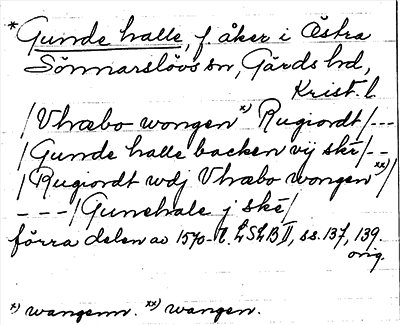 *Gunde halle, f. åker i Östra
Sönnarslövs sn, Gärds hd,
Krist. l.
/Vhræbo wongen x) Rugiordt/---
/Gunde halle backen vij ske/--
/Rugiordt wdj Vhræbo wongen xx)/
---/Gunehale j ske/
förra delen av 1570-t. LSLB II, ss. 137, 139.
orig.
x) wangenn. xx) wangen.